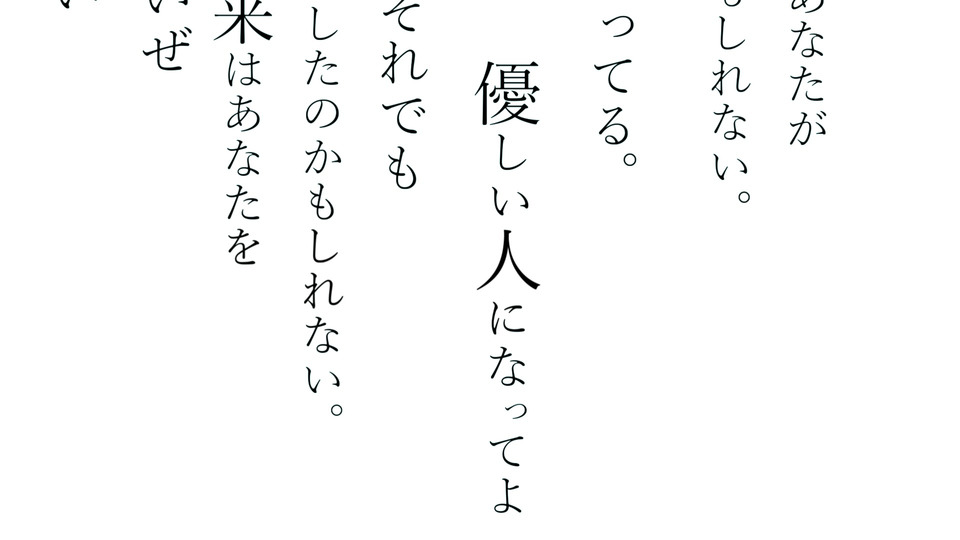 あなたが
しれない。
ってる。
優しい人になってよ
それでも
したのかもしれない。
来はあなたを
いぜ
い